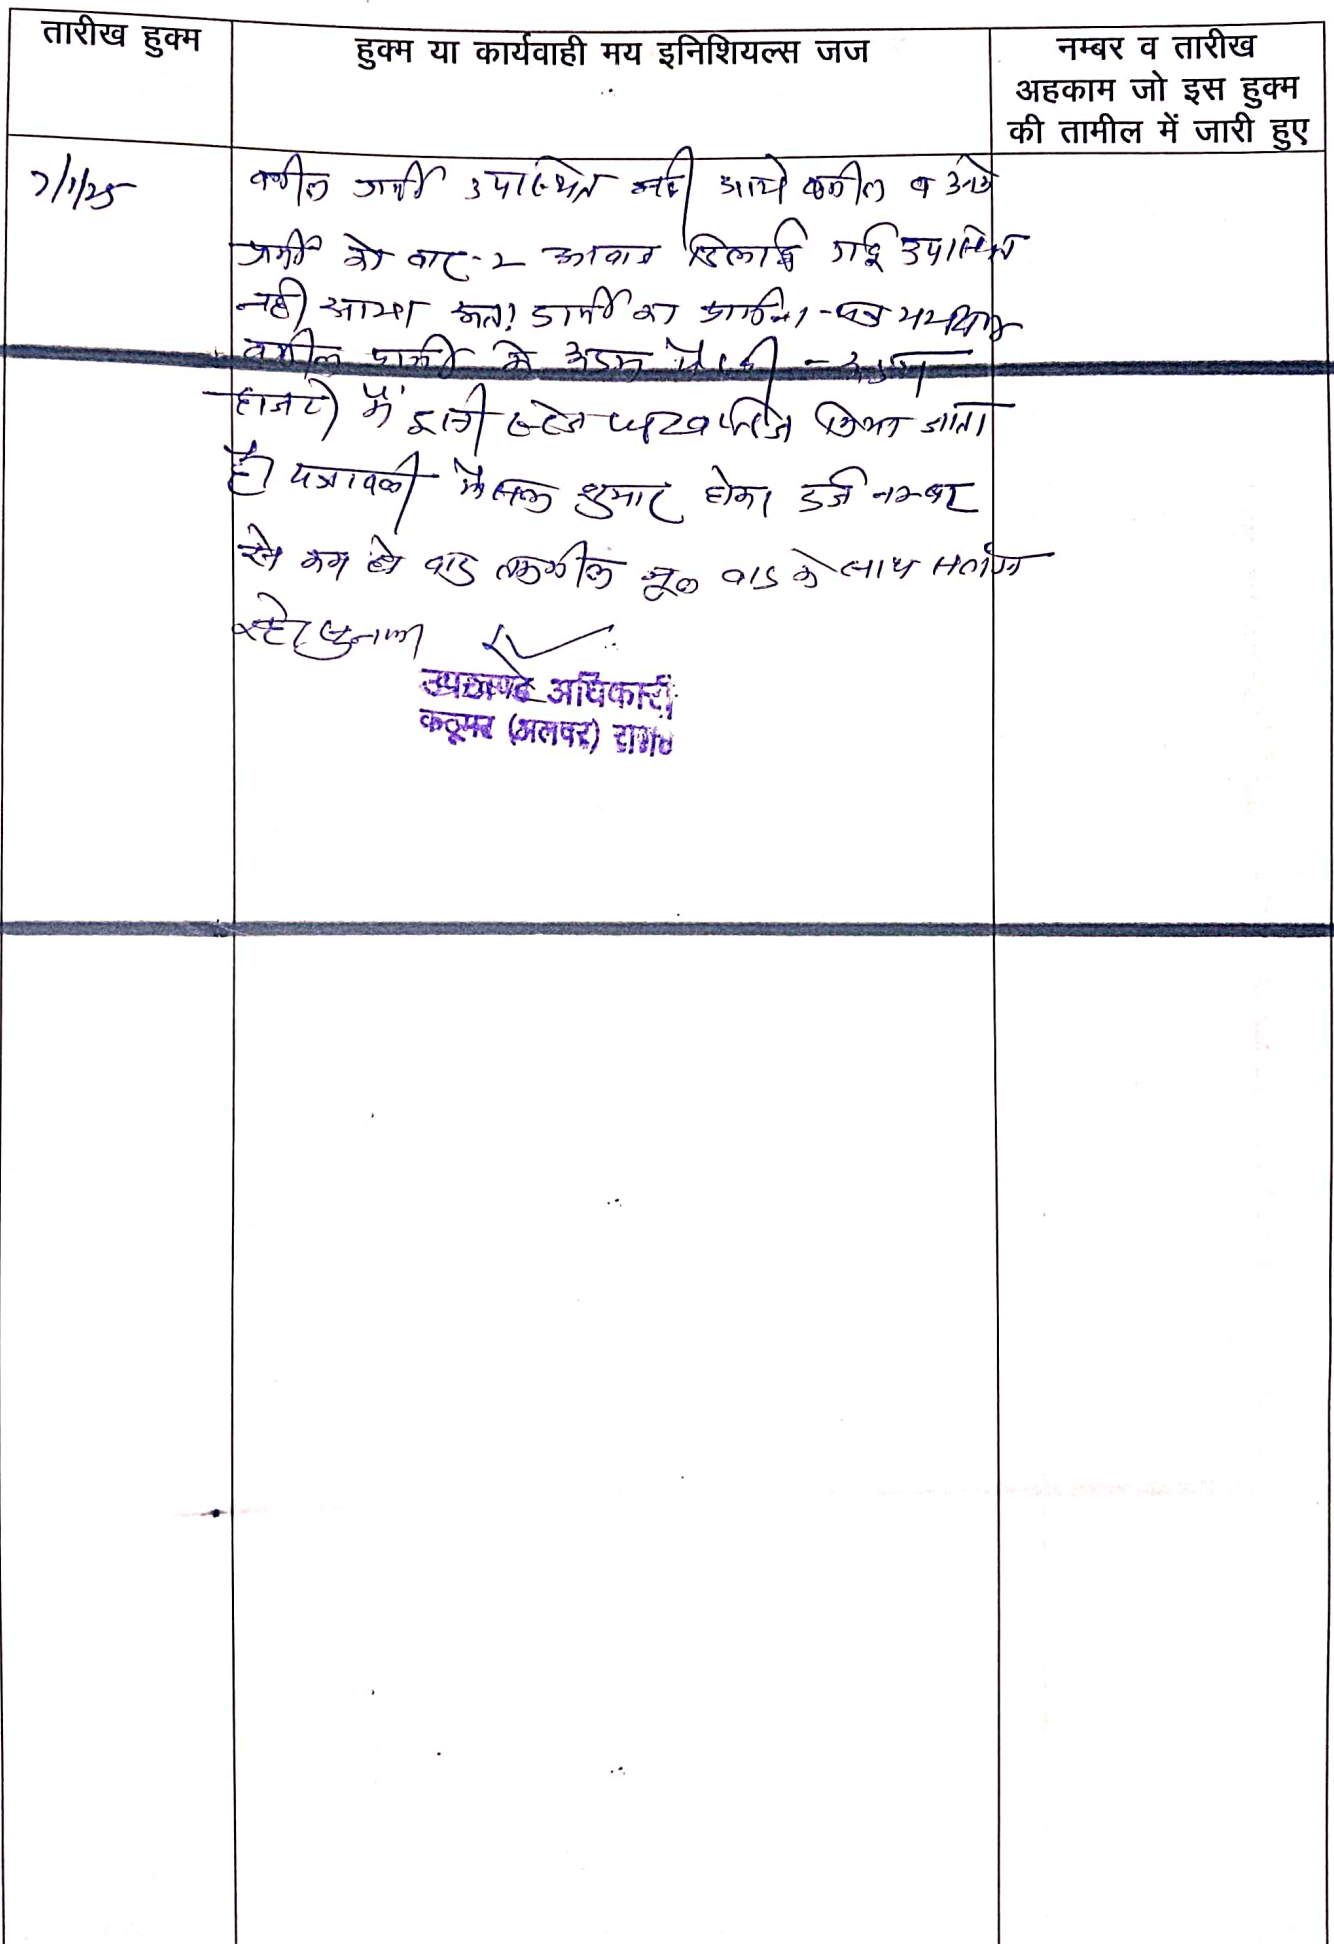 तारीख हुक्म
हुक्म या कार्यवाही मय इनिशियल्स जज
नम्बर व तारीख
अहकाम जो इस हुक्म
की तामील में जारी हुए
7/1/25
वकील प्रार्थी उपस्थित नही आये वकील व उनके
प्रार्थी को बार-2 आवाज दिलाई गई उपस्थित
नही आया अतः प्रार्थी का प्रार्थना-पत्र
वकील प्रार्थी के अदम पैरवी -
हाजरी में इसी स्टेज पर खारिज किया जाता
है। पत्रावली फैसल शुमार होकर दर्ज नम्बर
से कम हो बाद तकमील मूल वाद के साथ संलग्न
रहे।
उपखण्ड अधिकारी
कठूमर (अलवर) राज०